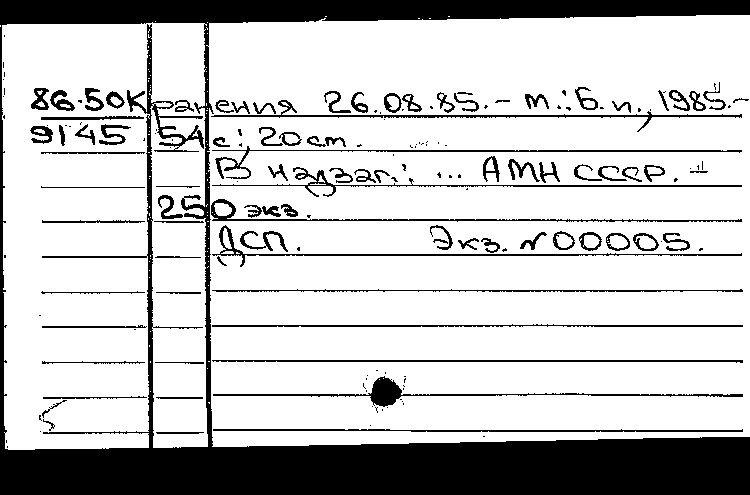 86-50К ранения 26.08.85.- М.: Б.и., 1985.-
9145 54 с.; 20 см.
В надзаг.: ... АМН СССР. -
250 экз.
ДСП. Экз. N 00005.